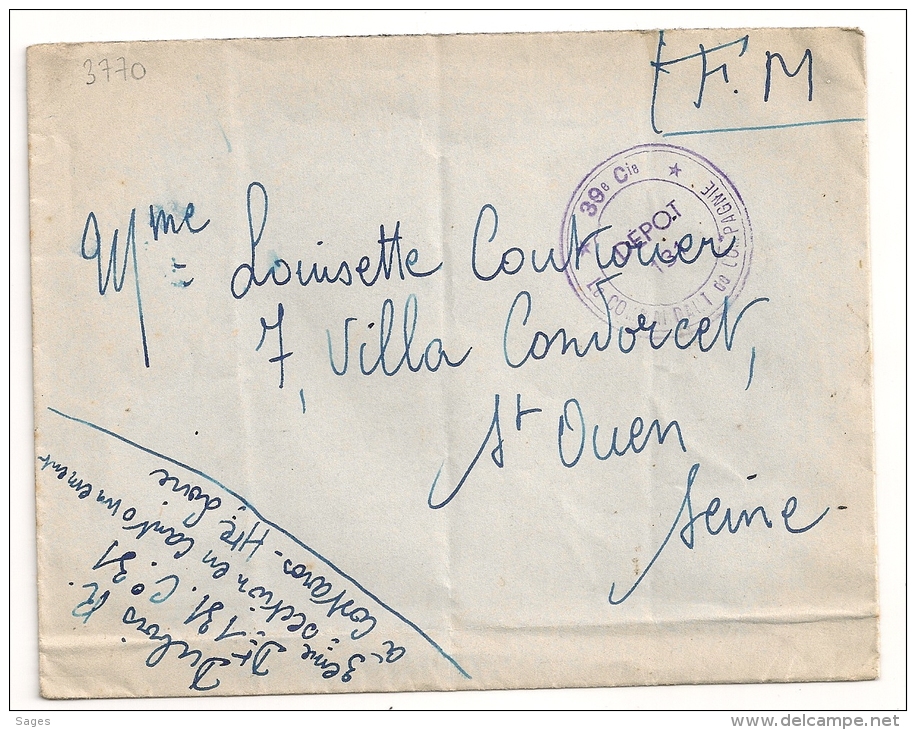 3770
F. M
39e Cie
DÉPOT
Le COMMANDANT de COMPAGNIE
Mme Louisette Couturier
7, Villa Condorcet,
St Ouen
Seine-
Dubois R.
Dt 131. Co 31
3ème section en cantonnement
à Costaros - Hte Loire
Sages
delcampe.net